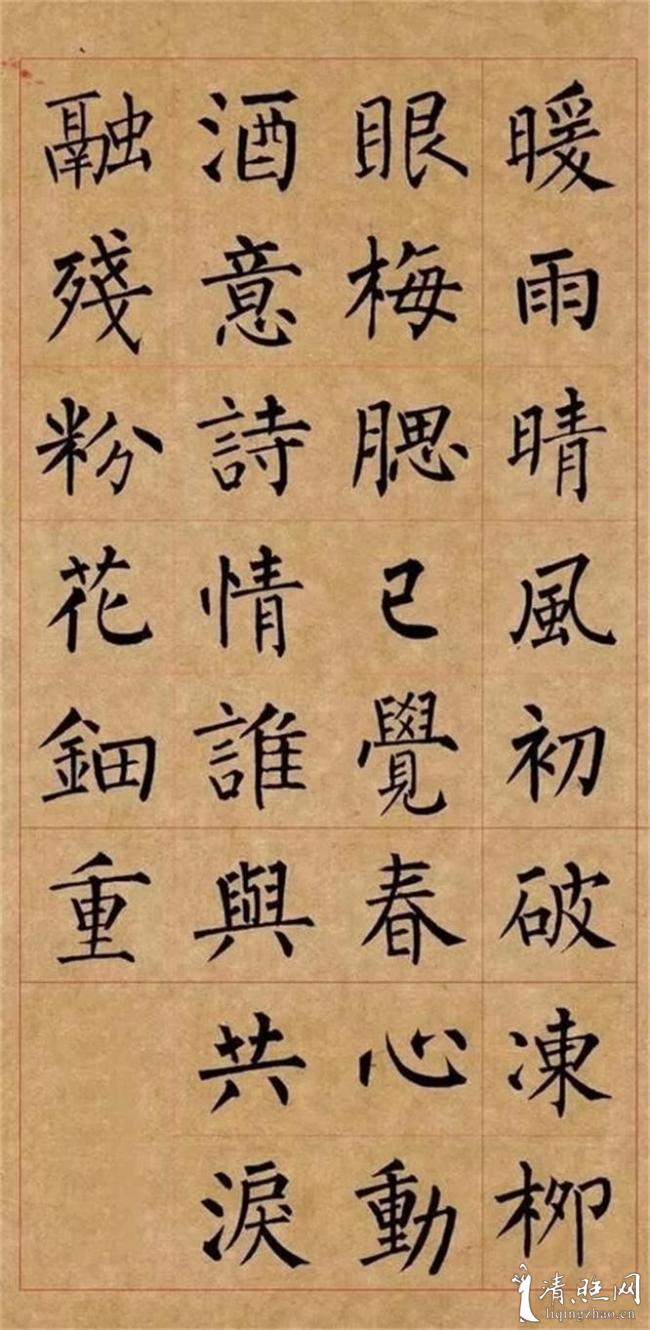 暖雨晴風初破凍柳
眼梅腮已覺春心動
酒意詩情誰與共淚
融殘粉花鈿重
清旺网
liqingzhao.cn